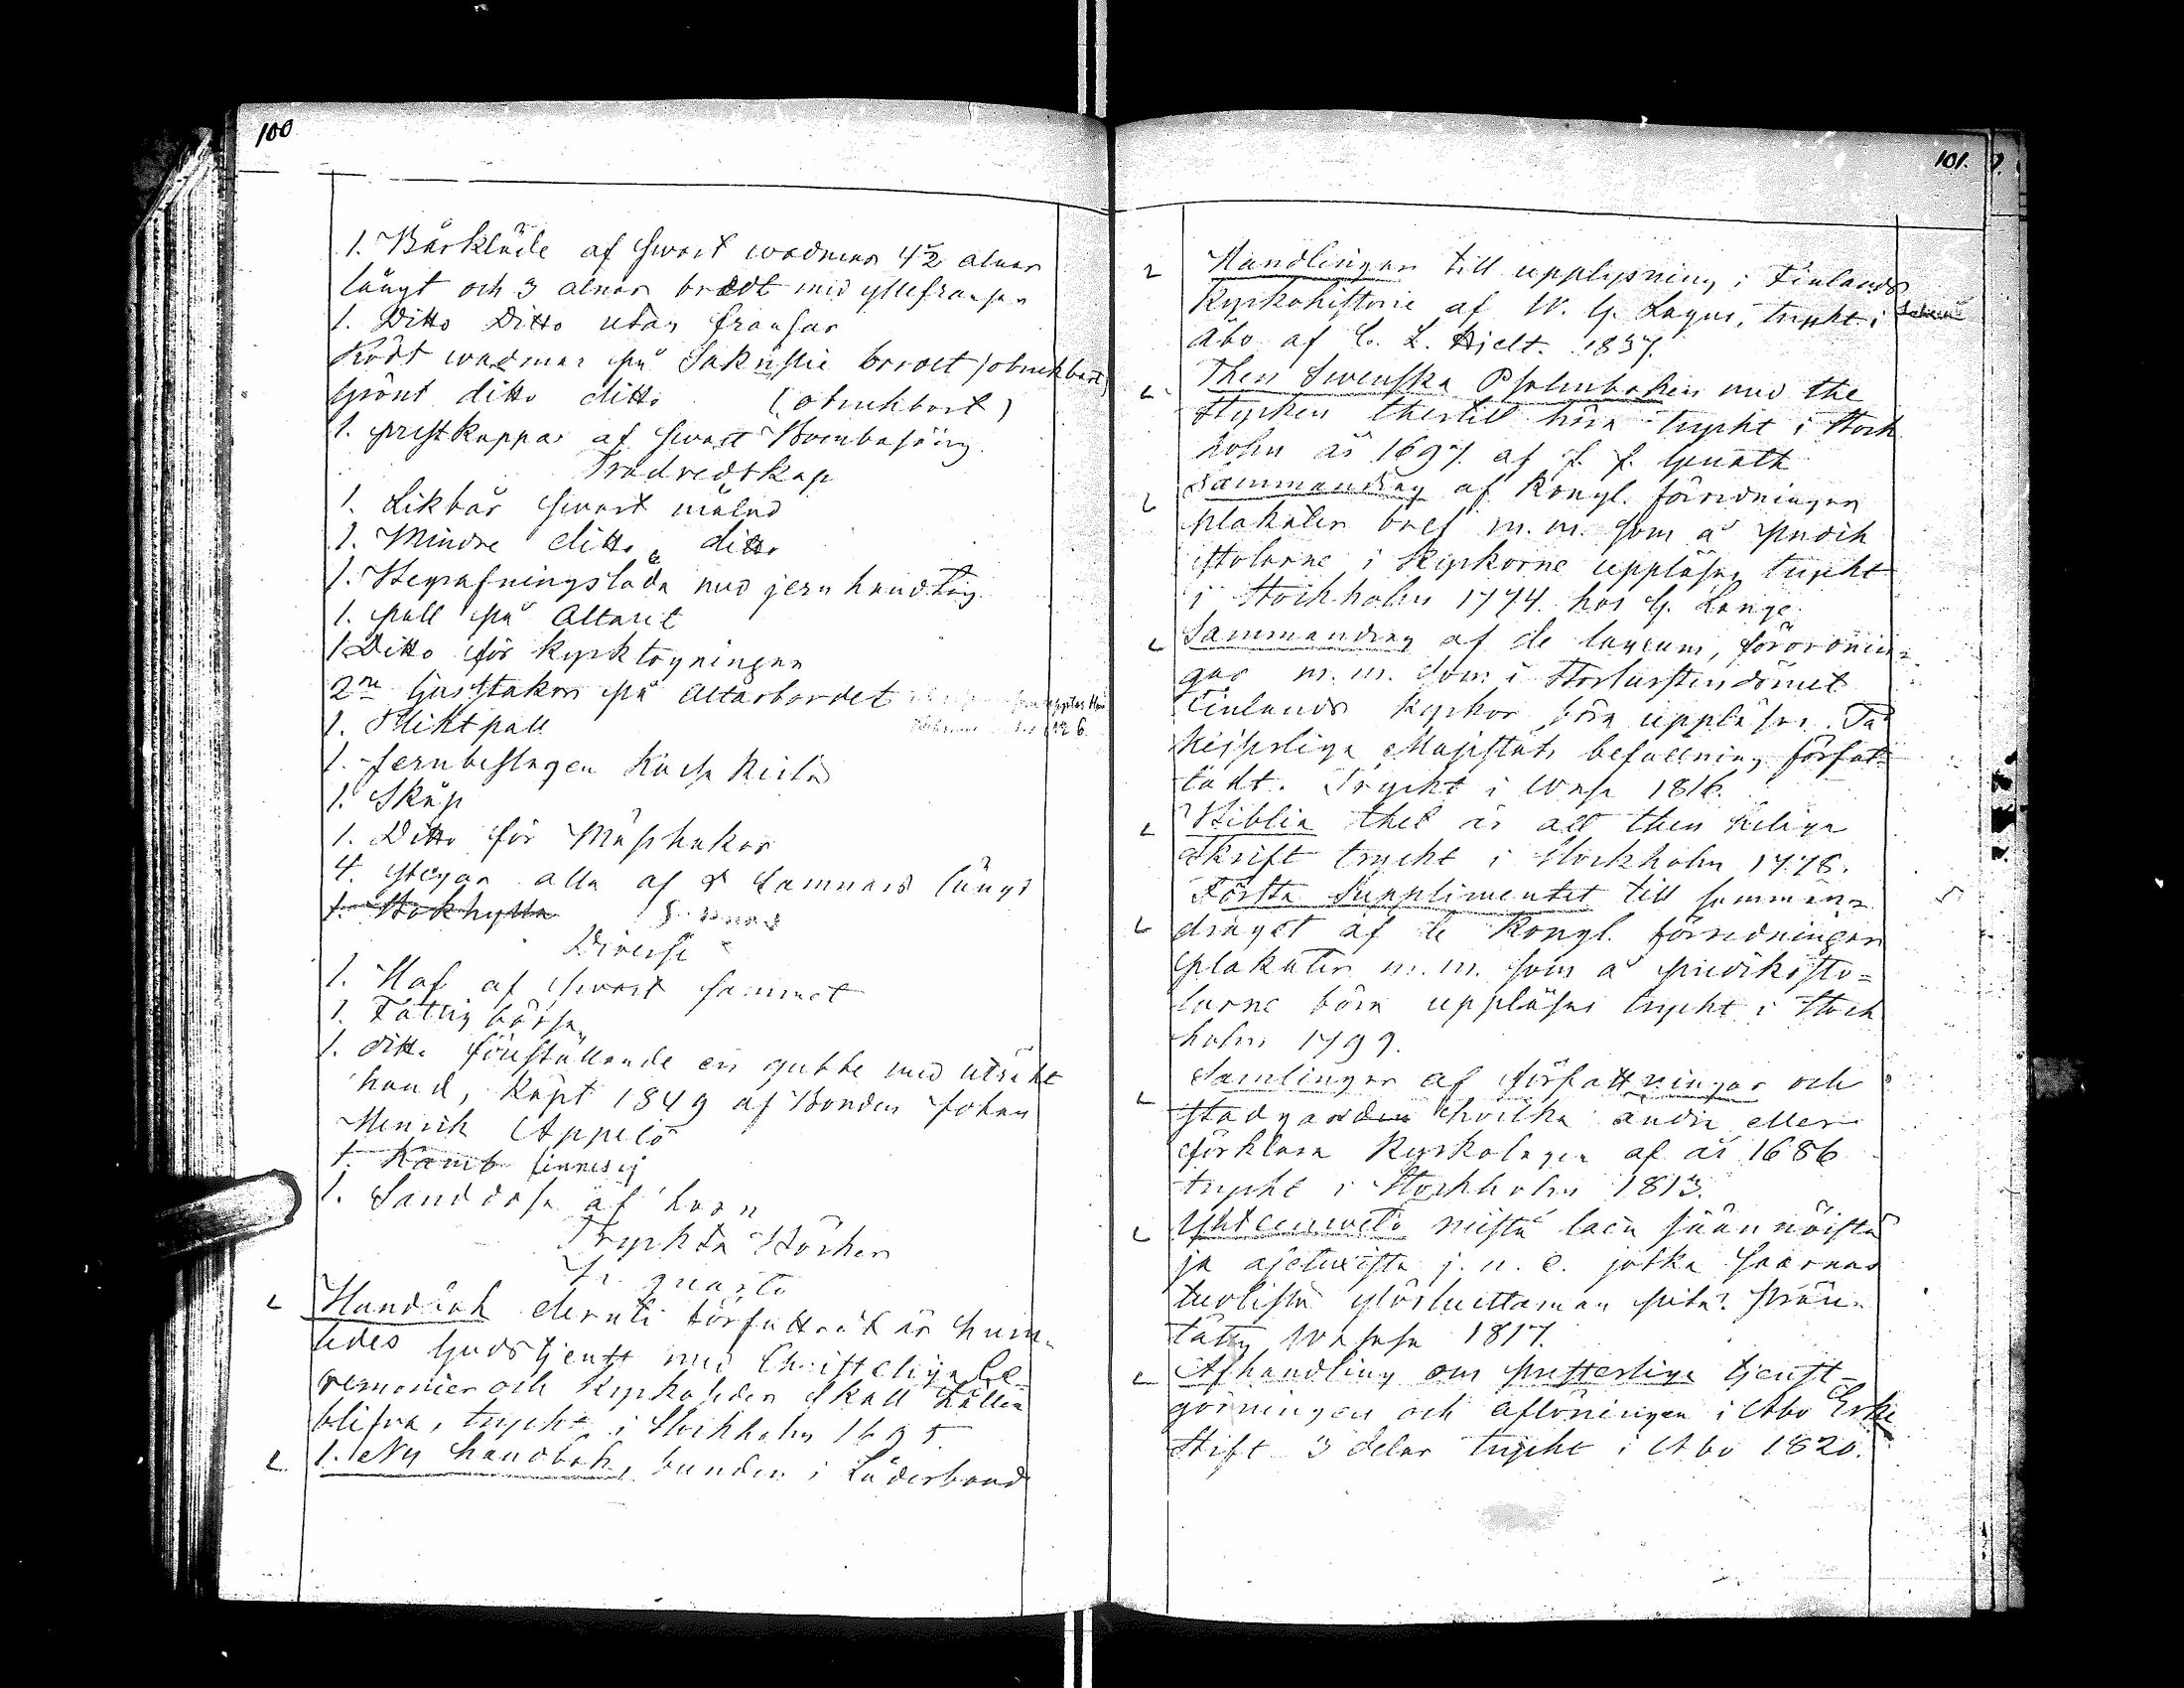 100
1. Bårkläde af swart wadmar 4½ alnar
långt och 3 alnar bredt med yllefransar
1. Ditto Ditto utan fransar
Rödt wadmar på Sakristie bordet (obrukbart)
Grönt ditto ditto (obrukbart)
1. prestkappa af swart Bombasäng
Trädredskap
1. Likbår swart målad
1. Mindre ditto ditto
1. Begrafningslåda med jern handtag
1. pall på Altaret
1 Ditto för kyrktagningen
2ne ljusstakar på altarbordet
1. Pliktpall
1. Jernbeslagen Kassa Kista
1. Skåp
1. Ditto för Mässhakar
4. stegar alla af 8 famnars längd
1. Bokhylla
Diverse
1. Haf af swart sammet
1. Fattig börsa
1. ditto föreställande en gubbe med utsträkt
hand, köpt 1849 af Bonden Johan
Henrik Appelö
1. Kamb finnes ej
1. Sanddosa af horn
Tryckta Böcker
In quarto
Handbok deruti författadt är huru-
ledes Gudstjenst med Christeliga Ce-
remonier och Kyrkoseder skall hållen
blifva, tryckt i Stockholm 1695
1. Ny handbok, bunden i Läderband
101.
Handlingar till upplysning i Finlands
Kyrkohistorie af W. G. Lagus, tryckt i
Åbo af C. L. Hjelt. 1837.
Then Swenska Psalmboken med the
stycken thertil höra tryckt i Stock
holm år 1697. af J. J. Genath
Sammandrag af Kongl. förordningar
plakater bref m.m. som å predik
stolarne i Kyrkorne uppläsas tryckt
i Stockholm 1774. hos G. Lange.
Sammandrag af de lagrum, förordnin-
gar m.m. som i Storfurstendömet
Finlands kyrkor böra uppläsas. På
Kejserliga Majestäts befallning förfat-
tadt. Tryckt i Wasa 1816.
Biblia thet är all then heliga
Skrift tryckt i Stockholm 1778.
Första Supplimentet till samman-
draget af de Kongl. förordningar
plakater m.m. som å prediksto-
larne böra uppläsas tryckt i Stock
holm 1799.
Samlingar af författningar och
stadgarden hvilka ändra eller
förklara Kyrkolagen af år 1686
tryckt i Stockholm 1813.
Yhteenweto niistä lain säännöistä
ja asetuxista j. n. e. jotka saarnas
tuolista ylösluettaman pitä. Prän-
tätty Wasasa 1817.
Afhandling om presterliga tjenst-
göringen och aflöningen i Abo Erke
Stift 3 delar tryckt i Abo 1820.